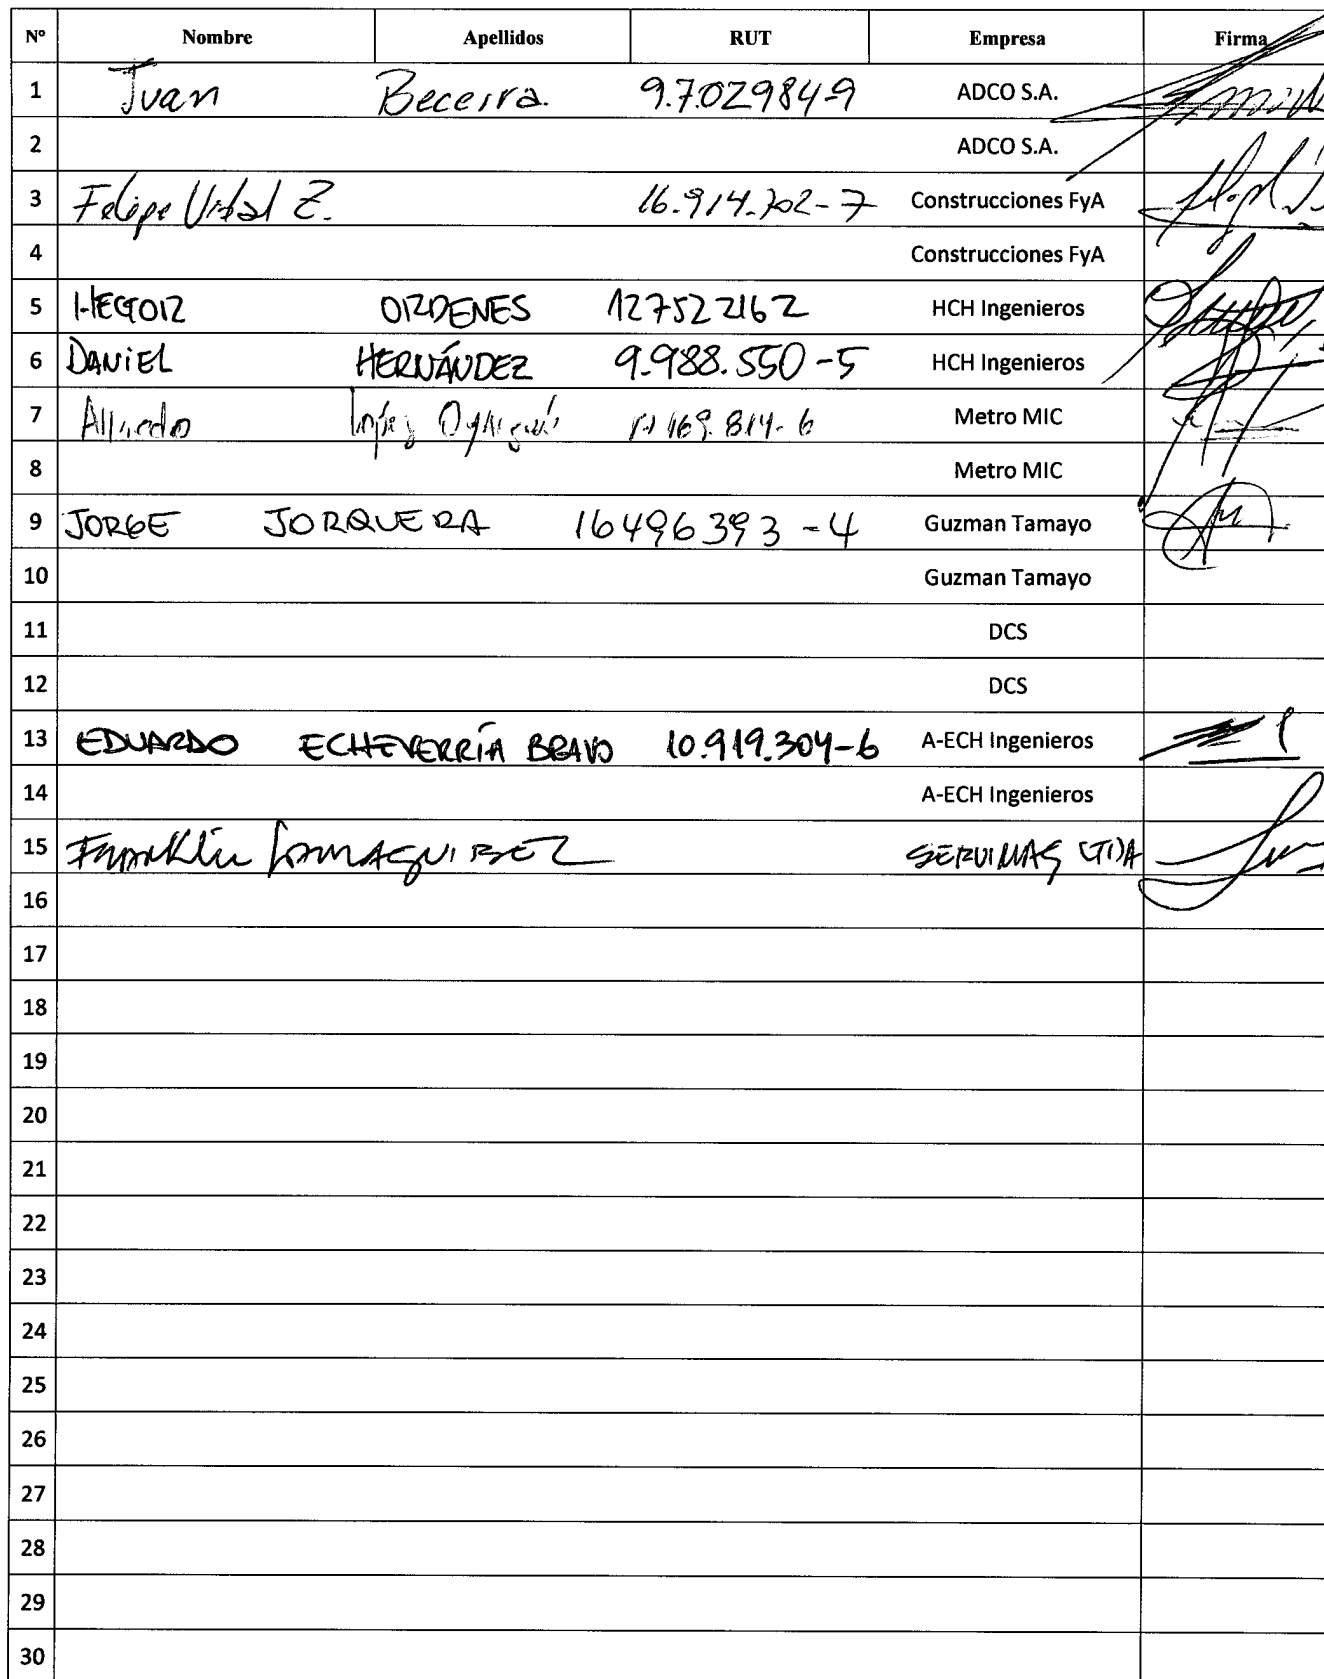 Nº Nombre Apellidos RUT Empresa Firma
1 Juan Becerra. 9.7029849 ADCO S.A.
2 ADCO S.A.
3 Felipe Vidal Z. 16.914.702-7 Construcciones FyA
4 Construcciones FyA
5 HECTOR ORDENES 127522162 HCH Ingenieros
6 DANIEL HERNÁNDEZ 9.988.550-5 HCH Ingenieros
7 Alfredo López Metro MIC
8 Metro MIC
9 JORGE JORQUERA 16496393-4 Guzman Tamayo
10 Guzman Tamayo
11 DCS
12 DCS
13 EDUARDO ECHEVERRÍA BRAVO 10.919.304-6 A-ECH Ingenieros
14 A-ECH Ingenieros
15 Franklin SERVIMAS LTDA
16
17
18
19
20
21
22
23
24
25
26
27
28
29
30